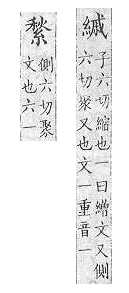 縬
子六切縮也一曰繒文又側
六切聚又也文一重音一
側六切聚
文也六一